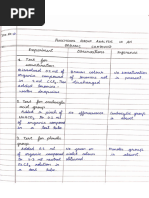 FUNCTIONAL GROUP ANALYSIS IN AN
ORGANIC COMPOUND
Experiment
Observations
Inference
Test for
unsaturation
Dissolved 0.5 ml of
organic compound
in 2 ml CCl4 then
added bromine
water dropwise
colour
of bromine not
discharged
no unsaturation
Test for carboxylic
acid group:
Added a pinch of
NaHCO3 to 2 ml
of organic compound
in a test tube
no effervescence
carboxylic group
is absent
Test for phenolic
group:
Added 2 drops of
to 2-3 ml neutral
FeCl3 solution in a
test tube
violet colour
obtained
Phenolic group
is absent